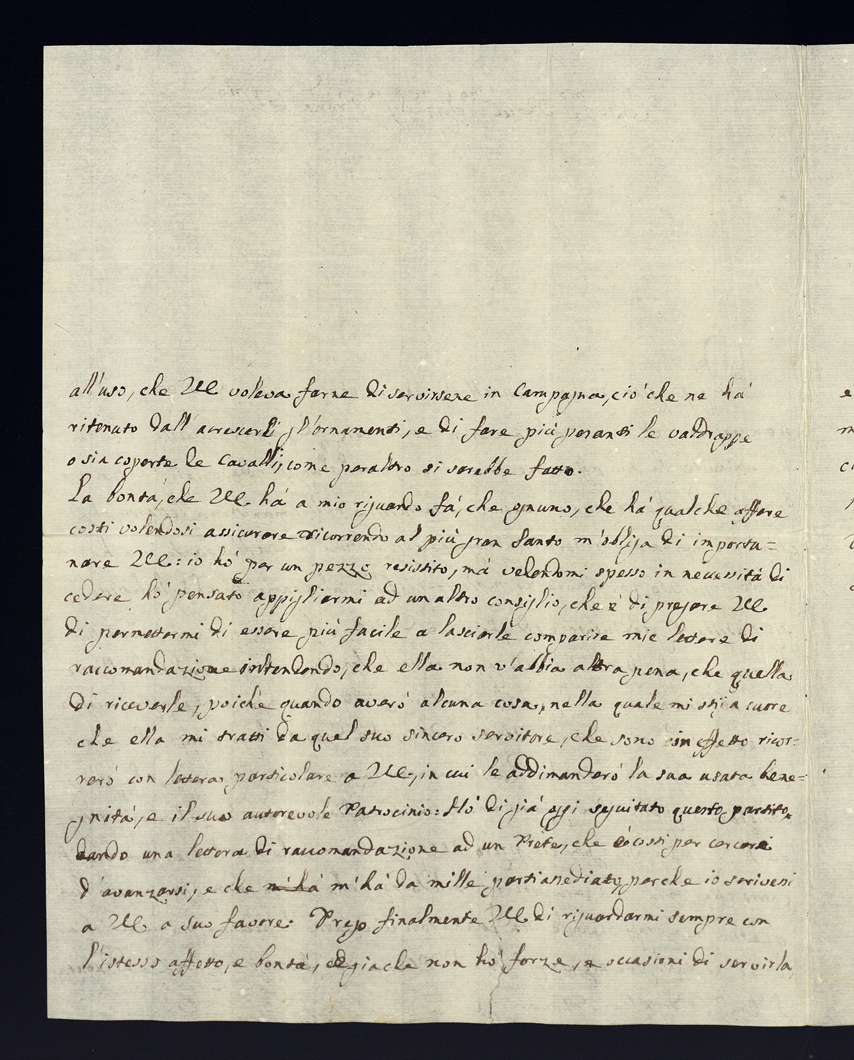 all'uso, che VE voleva farne di servirsene in Campagna, ciò che ne há
ritenuto dall'acrescerli gl'ornamenti, e di fare più pesanti le valdrappe
o sia coperte de Cavalli, come peraltro si sarebbe fatto.
La bontá, che VE. há a mio riguardo fá, che ognuno, che há qualche affare
costi volendosi assicurare ricorrendo al più gran Santo m'obliga di importu=
nare VE.: io hó per un pezzo resistito, má vedendomi spesso in necessitá di
cedere hó pensato appigliarmi ad un altro consiglio, che è di pregare VE.
di permettermi di essere più facile a lasciarle comparire mie lettere di
raccomandazione intendendo, che ella non v'abbia altra pena, che quella
di riceverle, poiche quando averó alcuna cosa, nella quale mi stij a cuore
che ella mi tratti da quel suo sincero servitore, che sono in effetto ricor=
reró con lettera particolare a VE., in cui le addimanderó la sua usata beni=
gnitá, e il suo autorevole Patrocinio: Hó di giá oggi seguitato questo partito,
dando una lettera di raccomandazione ad un Prete, che è costi per cercare
d'avanzarsi, e che m'há m'há da mille parti perche io scrivessi
a VE. a suo favore: Prego finalmente VE. di riguardarmi sempre con
l'istesso affetto, e bontá, ed giache non hó forze, e occasioni di servirla,